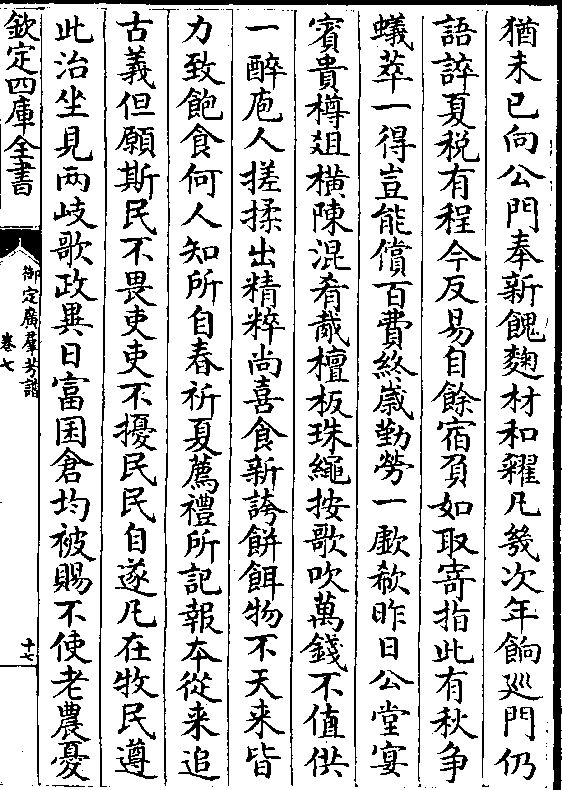 猶未已向公門奉新餽麴材和糴凡幾次年餉廵門仍
語誶夏税有程今反易自餘宿負如取寄指此有秋争
蟻萃一得豈能償百費終嵗勤勞一歔欷昨日公堂宴
賓貴樽俎横陳混肴胾檀板珠繩按歌吹萬錢不值供
一醉庖人搓揉出精粹尚喜食新誇餅餌物不天来皆
力致飽食何人知所自春祈夏薦禮所記報本從来追
古義但願斯民不畏吏吏不擾民民自遂凡在牧民遵
此治坐見兩岐歌政異日富囷倉均被賜不使老農憂
欽定四庫全書
御定廣羣芳譜
卷七
十七